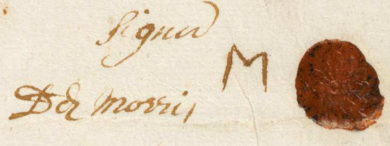 Signed
M
Der Morris